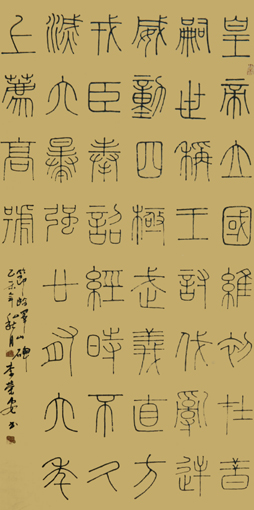 皇帝立國維初在昔
嗣世稱王討伐亂逆
威動四極武義直方
戎臣奉詔經時不久
滅六暴強廿有六年
上薦高號
節臨嶧山碑
乙未年秋月李書